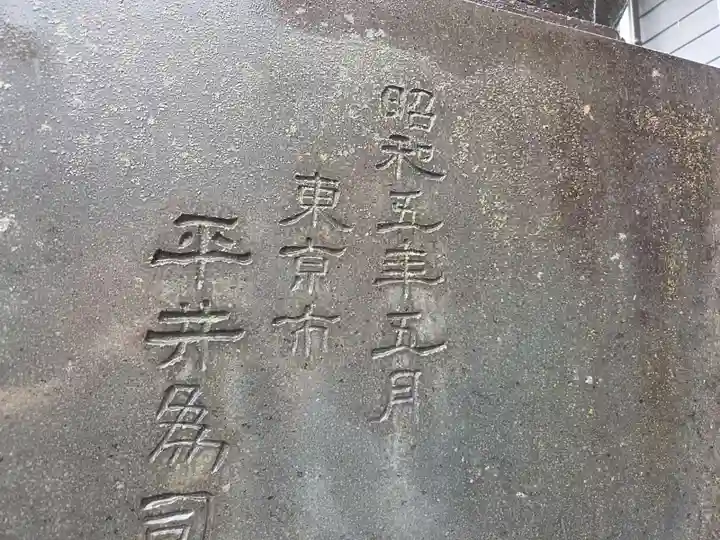 昭和五年五月
東京市
平井為司